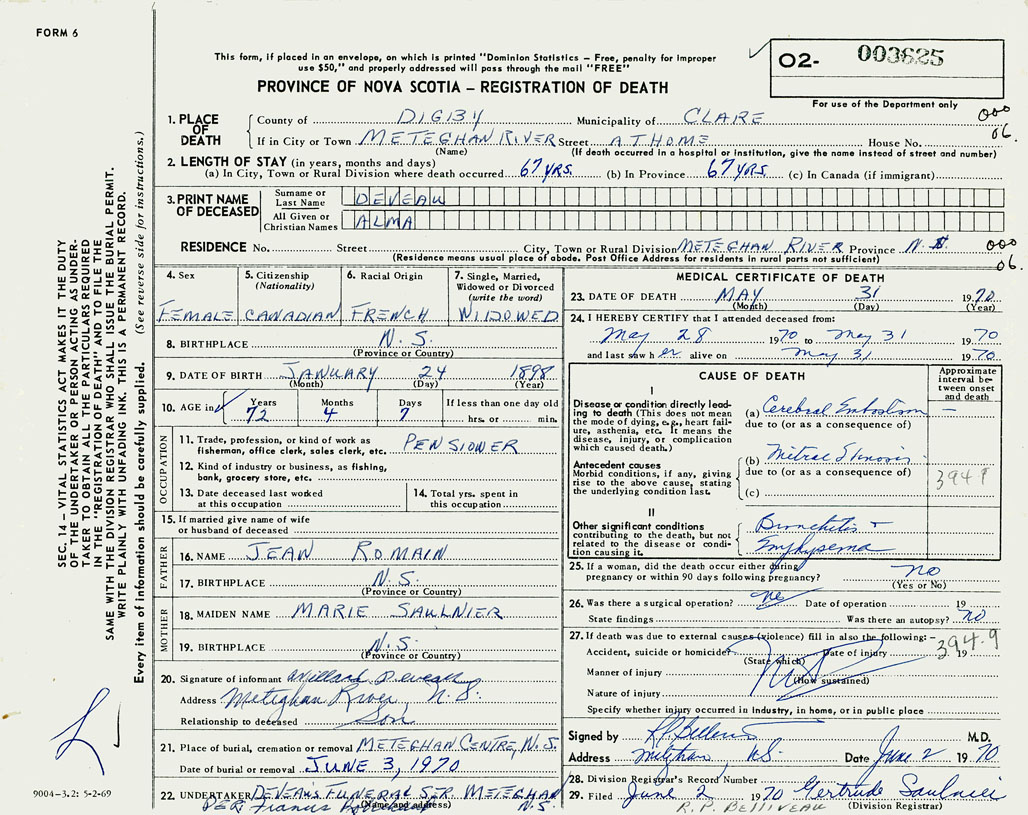 FORM 6
This form, if placed in an envelope, on which is printed "Dominion Statistics – Free, penalty for improper
use $50," and properly addressed will pass through the mail "FREE"
O2- 003625
PROVINCE OF NOVA SCOTIA – REGISTRATION OF DEATH
For use of the Department only
1. PLACE OF DEATH
County of DIGBY Municipality of CLARE 000
If in City or Town METEGHAN RIVER Street AT HOME House No. 06.
(Name) (If death occurred in a hospital or institution, give the name instead of street and number)
2. LENGTH OF STAY (in years, months and days)
(a) In City, Town or Rural Division where death occurred 67 YRS. (b) In Province 67 YRS. (c) In Canada (if immigrant)
3. PRINT NAME OF DECEASED
Surname or Last Name DEVEAU
All Given or Christian Names ALMA
RESIDENCE No. Street City, Town or Rural Division METEGHAN RIVER Province N.S. 000
(Residence means usual place of abode. Post Office Address for residents in rural parts not sufficient) 06.
4. Sex FEMALE
5. Citizenship (Nationality) CANADIAN
6. Racial Origin FRENCH
7. Single, Married, Widowed or Divorced (write the word) WIDOWED
8. BIRTHPLACE N.S.
(Province or Country)
9. DATE OF BIRTH JANUARY 24 1898
(Month) (Day) (Year)
10. AGE in Years 72 Months 4 Days 7 If less than one day old
hrs. or min.
OCCUPATION
11. Trade, profession, or kind of work as
fisherman, office clerk, sales clerk, etc. PENSIONER
12. Kind of industry or business, as fishing,
bank, grocery store, etc.
13. Date deceased last worked
at this occupation
14. Total yrs. spent in
this occupation
15. If married give name of wife
or husband of deceased
FATHER
16. NAME JEAN ROMAIN
17. BIRTHPLACE N.S.
(Province or Country)
MOTHER
18. MAIDEN NAME MARIE SAULNIER
19. BIRTHPLACE N.S.
(Province or Country)
20. Signature of informant Willard Deveau
Address Meteghan River, N.S.
Relationship to deceased Son
21. Place of burial, cremation or removal METEGHAN CENTRE, N.S.
Date of burial or removal JUNE 3, 1970
22. UNDERTAKER DEVEAUS FUNERAL SER. METEGHAN
(Name and address) N.S.
PER Francis
MEDICAL CERTIFICATE OF DEATH
23. DATE OF DEATH MAY 31 1970
(Month) (Day) (Year)
24. I HEREBY CERTIFY that I attended deceased from:
May 28 1970 to May 31 1970
and last saw her alive on May 31 1970
CAUSE OF DEATH
Approximate interval between onset and death
I
Disease or condition directly leading to death (This does not mean the mode of dying, e.g., heart failure, asthenia, etc. It means the disease, injury, or complication which caused death.)
(a) Cerebral Embolism –
due to (or as a consequence of)
Antecedent causes
Morbid conditions, if any, giving rise to the above cause, stating the underlying condition last.
(b) Mitral Stenosis
due to (or as a consequence of) 394.9
(c)
II
Other significant conditions
contributing to the death, but not related to the disease or condition causing it.
Bronchitis +
Emphysema
25. If a woman, did the death occur either during
pregnancy or within 90 days following pregnancy? no
(Yes or No)
26. Was there a surgical operation? no Date of operation 19
State findings Was there an autopsy? no
27. If death was due to external causes (violence) fill in also the following: – 394.9
Accident, suicide or homicide? Date of injury 19
(State which)
Manner of injury
(How sustained)
Nature of injury
Specify whether injury occurred in Industry, in home, or in public place
Signed by M.D.
Address Meteghan, N.S. Date June 2 1970
28. Division Registrar's Record Number
29. Filed June 2 1970 Gertrude Saulnier
R. P. BELLIVEAU (Division Registrar)
SEC. 14 – VITAL STATISTICS ACT MAKES IT THE DUTY
OF THE UNDERTAKER OR PERSON ACTING AS UNDER-
TAKER TO OBTAIN ALL THE PARTICULARS REQUIRED
IN THE "REGISTRATION OF DEATH" AND TO FILE THE
SAME WITH THE DIVISION REGISTRAR WHO SHALL ISSUE THE BURIAL PERMIT.
WRITE PLAINLY WITH UNFADING INK. THIS IS A PERMANENT RECORD.
Every item of information should be carefully supplied. (See reverse side for instructions.)
9004-3.2: 5-2-69